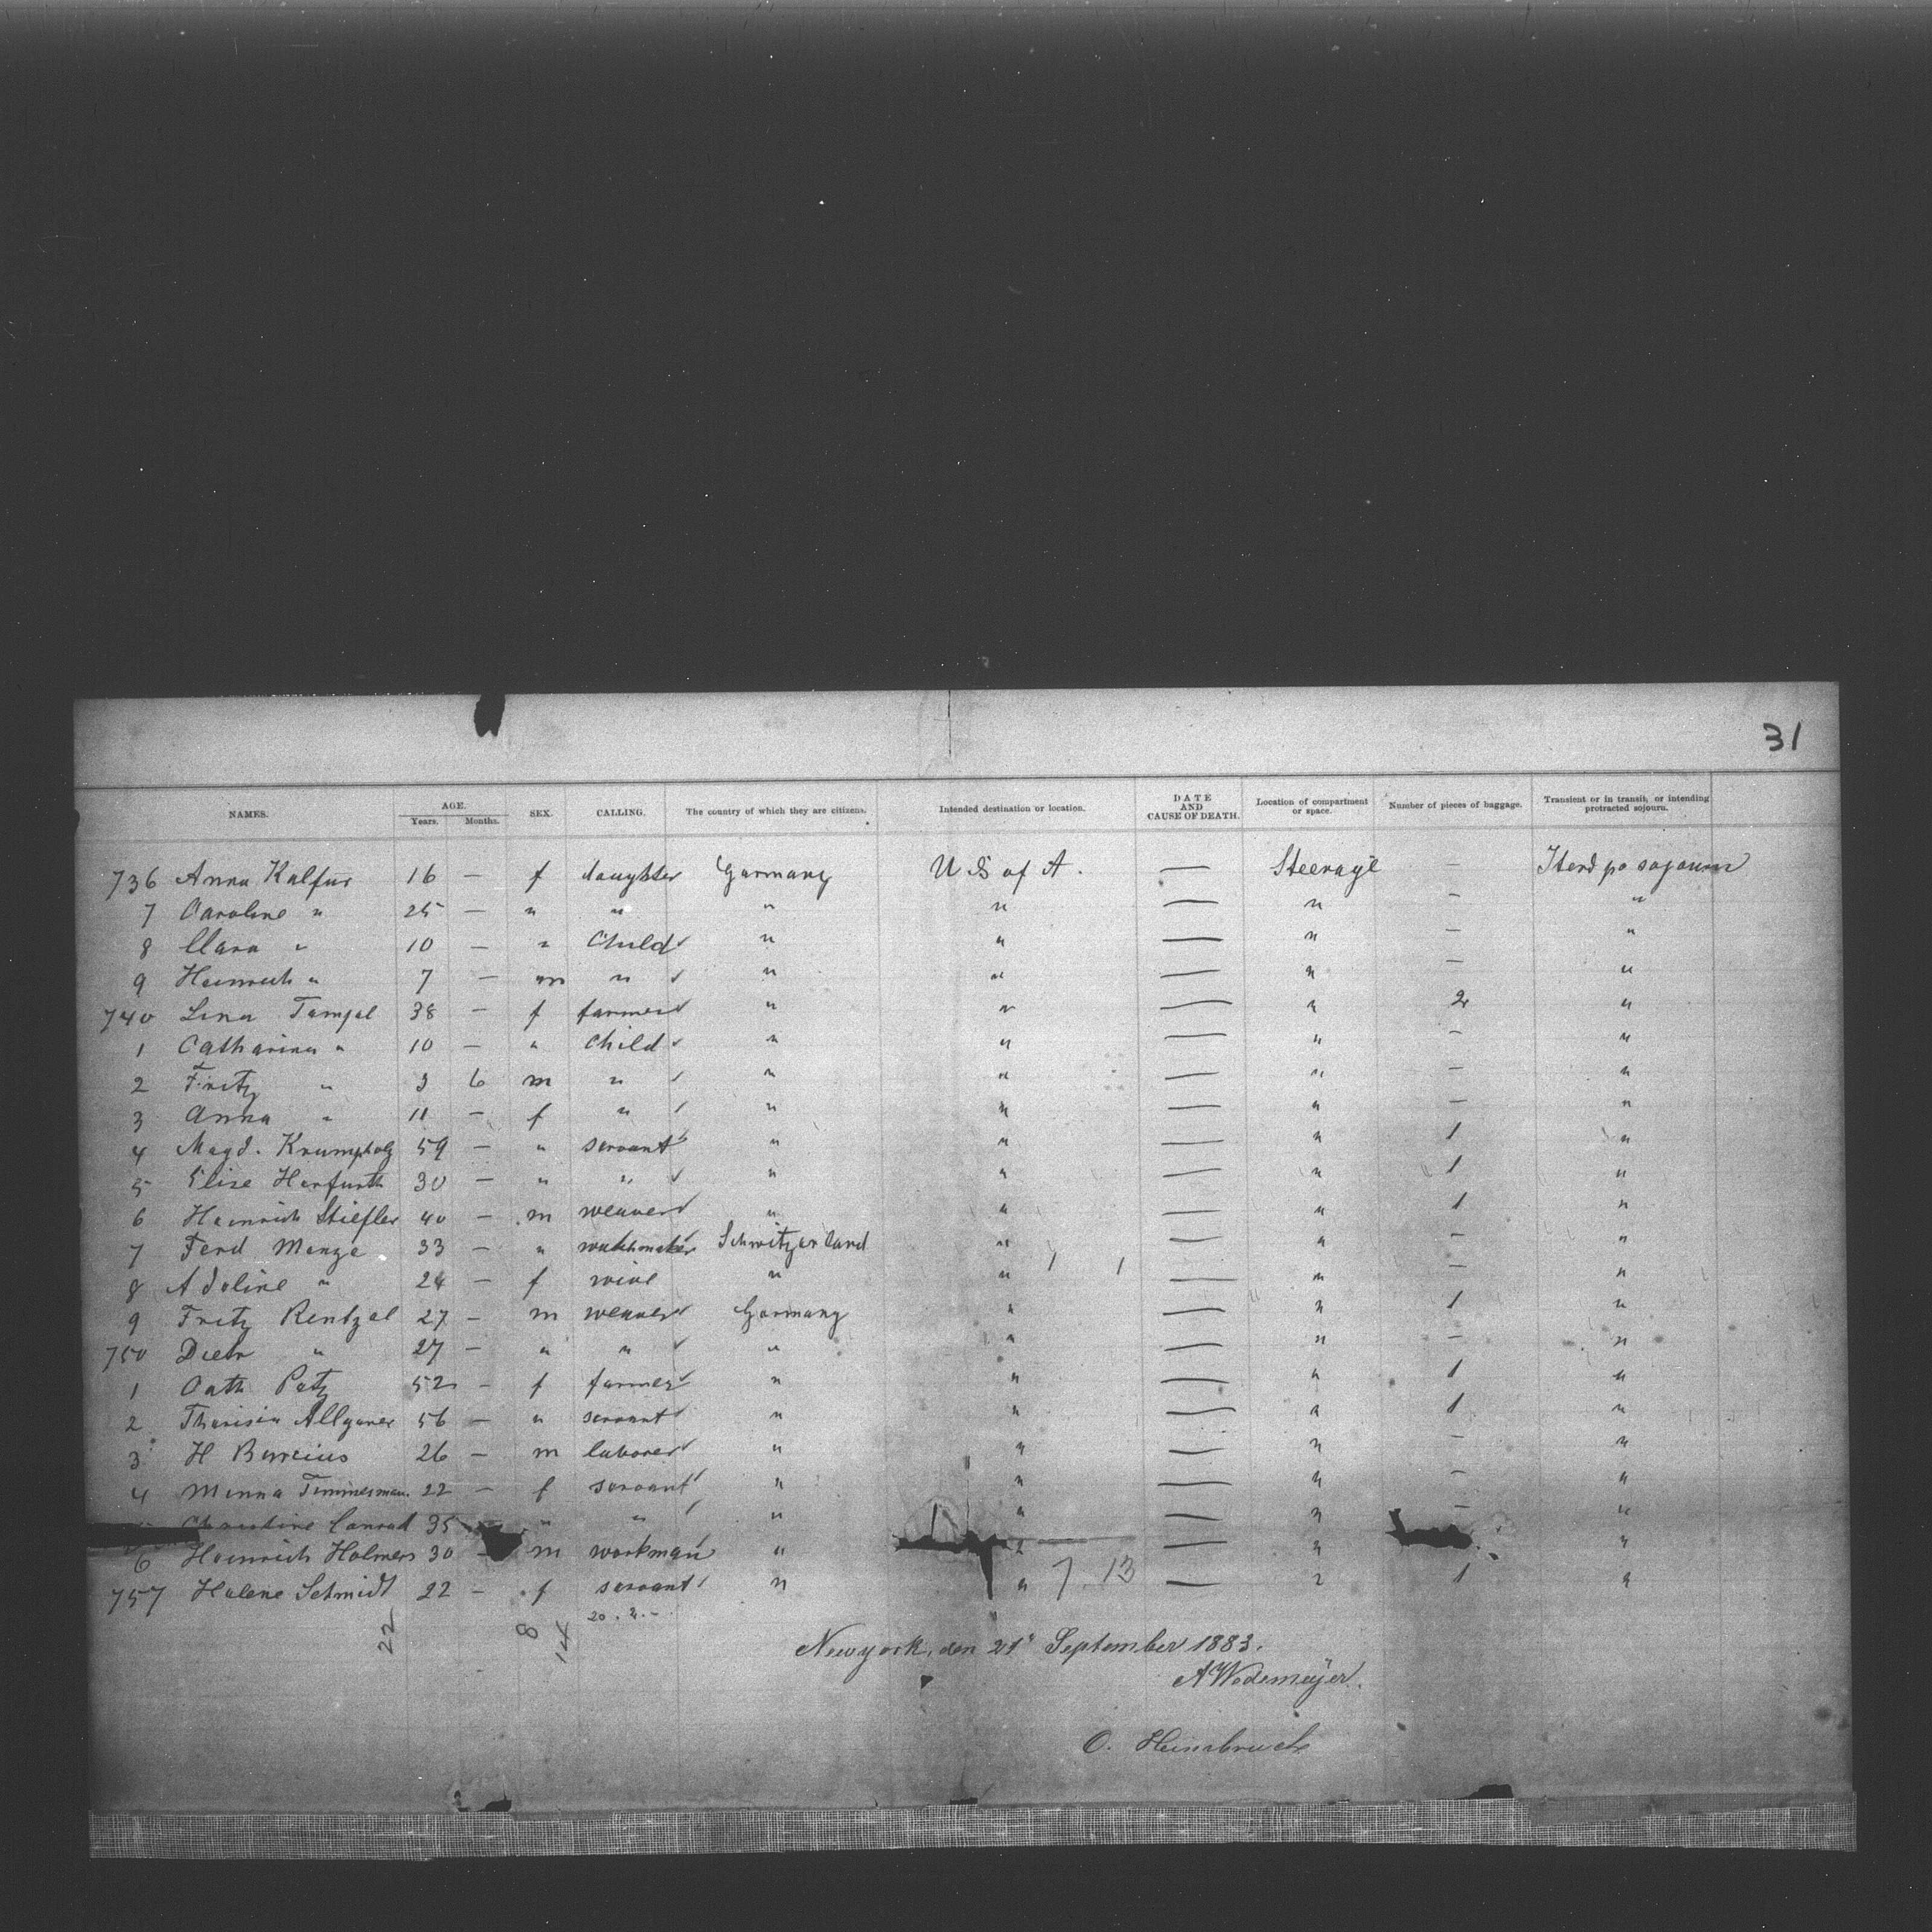 31
NAMES. AGE. Years. Months. SEX. CALLING. The country of which they are citizens. Intended destination or location. DATE AND CAUSE OF DEATH. Location of compartment or space. Number of pieces of baggage. Transient or in transit, or intending protracted sojourn.
736 Anna Kalfus 16 — f daughter Germany U S of A. — Steerage — sojourn
7 Caroline " 25 — " " " " — " — "
8 Clara " 10 — " Child " " — " — "
9 Heinrich " 7 — m " " " — " — "
740 Lina Tampel 38 — f farmer " " — " 2 "
1 Catharina " 10 — " Child " " — " — "
2 Fritz " 3 6 m " " " — " — "
3 Anna " 11 — f " " " — " — "
4 Magd. Krumpholz 59 — " servant " " — " 1 "
5 Elise Herfurth 30 — " " " " — " 1 "
6 Heinrich Stiefler 40 — m weaver " " — " 1 "
7 Ferd Menze 33 — " watchmaker Schwitzerland " — " — "
8 Adeline " 24 — f " " — " — "
9 Fritz Rentzel 27 — m weaver Germany " — " 1 "
750 Dietr " 27 — " " " " — " — "
1 Cath Patz 52 — f farmer " " — " 1 "
2 Theresia Allganer 56 — " servant " " — " 1 "
3 H 26 — m laborer " " — " — "
4 Minna Timmerman. 22 — f servant " " — " — "
Christine Conrad 35 — " " " " — " — "
6 Heinrich Holmers 30 — m workman " " — " "
757 Helene Schmidt 22 — f servant " " 7 13 — " 1 "
22 8 14 20. 2. —
Newyork, den 21t September 1883.
A Wedemeyer.
O. Heinsbruch